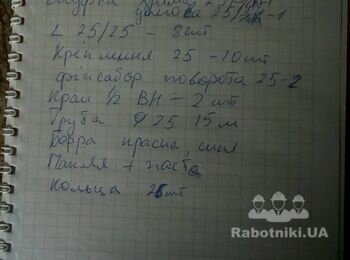 Муфта 25/
угловая 25/ - 1
L 25/25 - 8шт
Крепления 25 - 10шт
фиксатор поворота 25-2
Кран 1/2 ВН - 2 шт
Труба ф 25 15м
Гофра красна, синя
Пакля + паста
Кольца шт
Rabotniki.UA